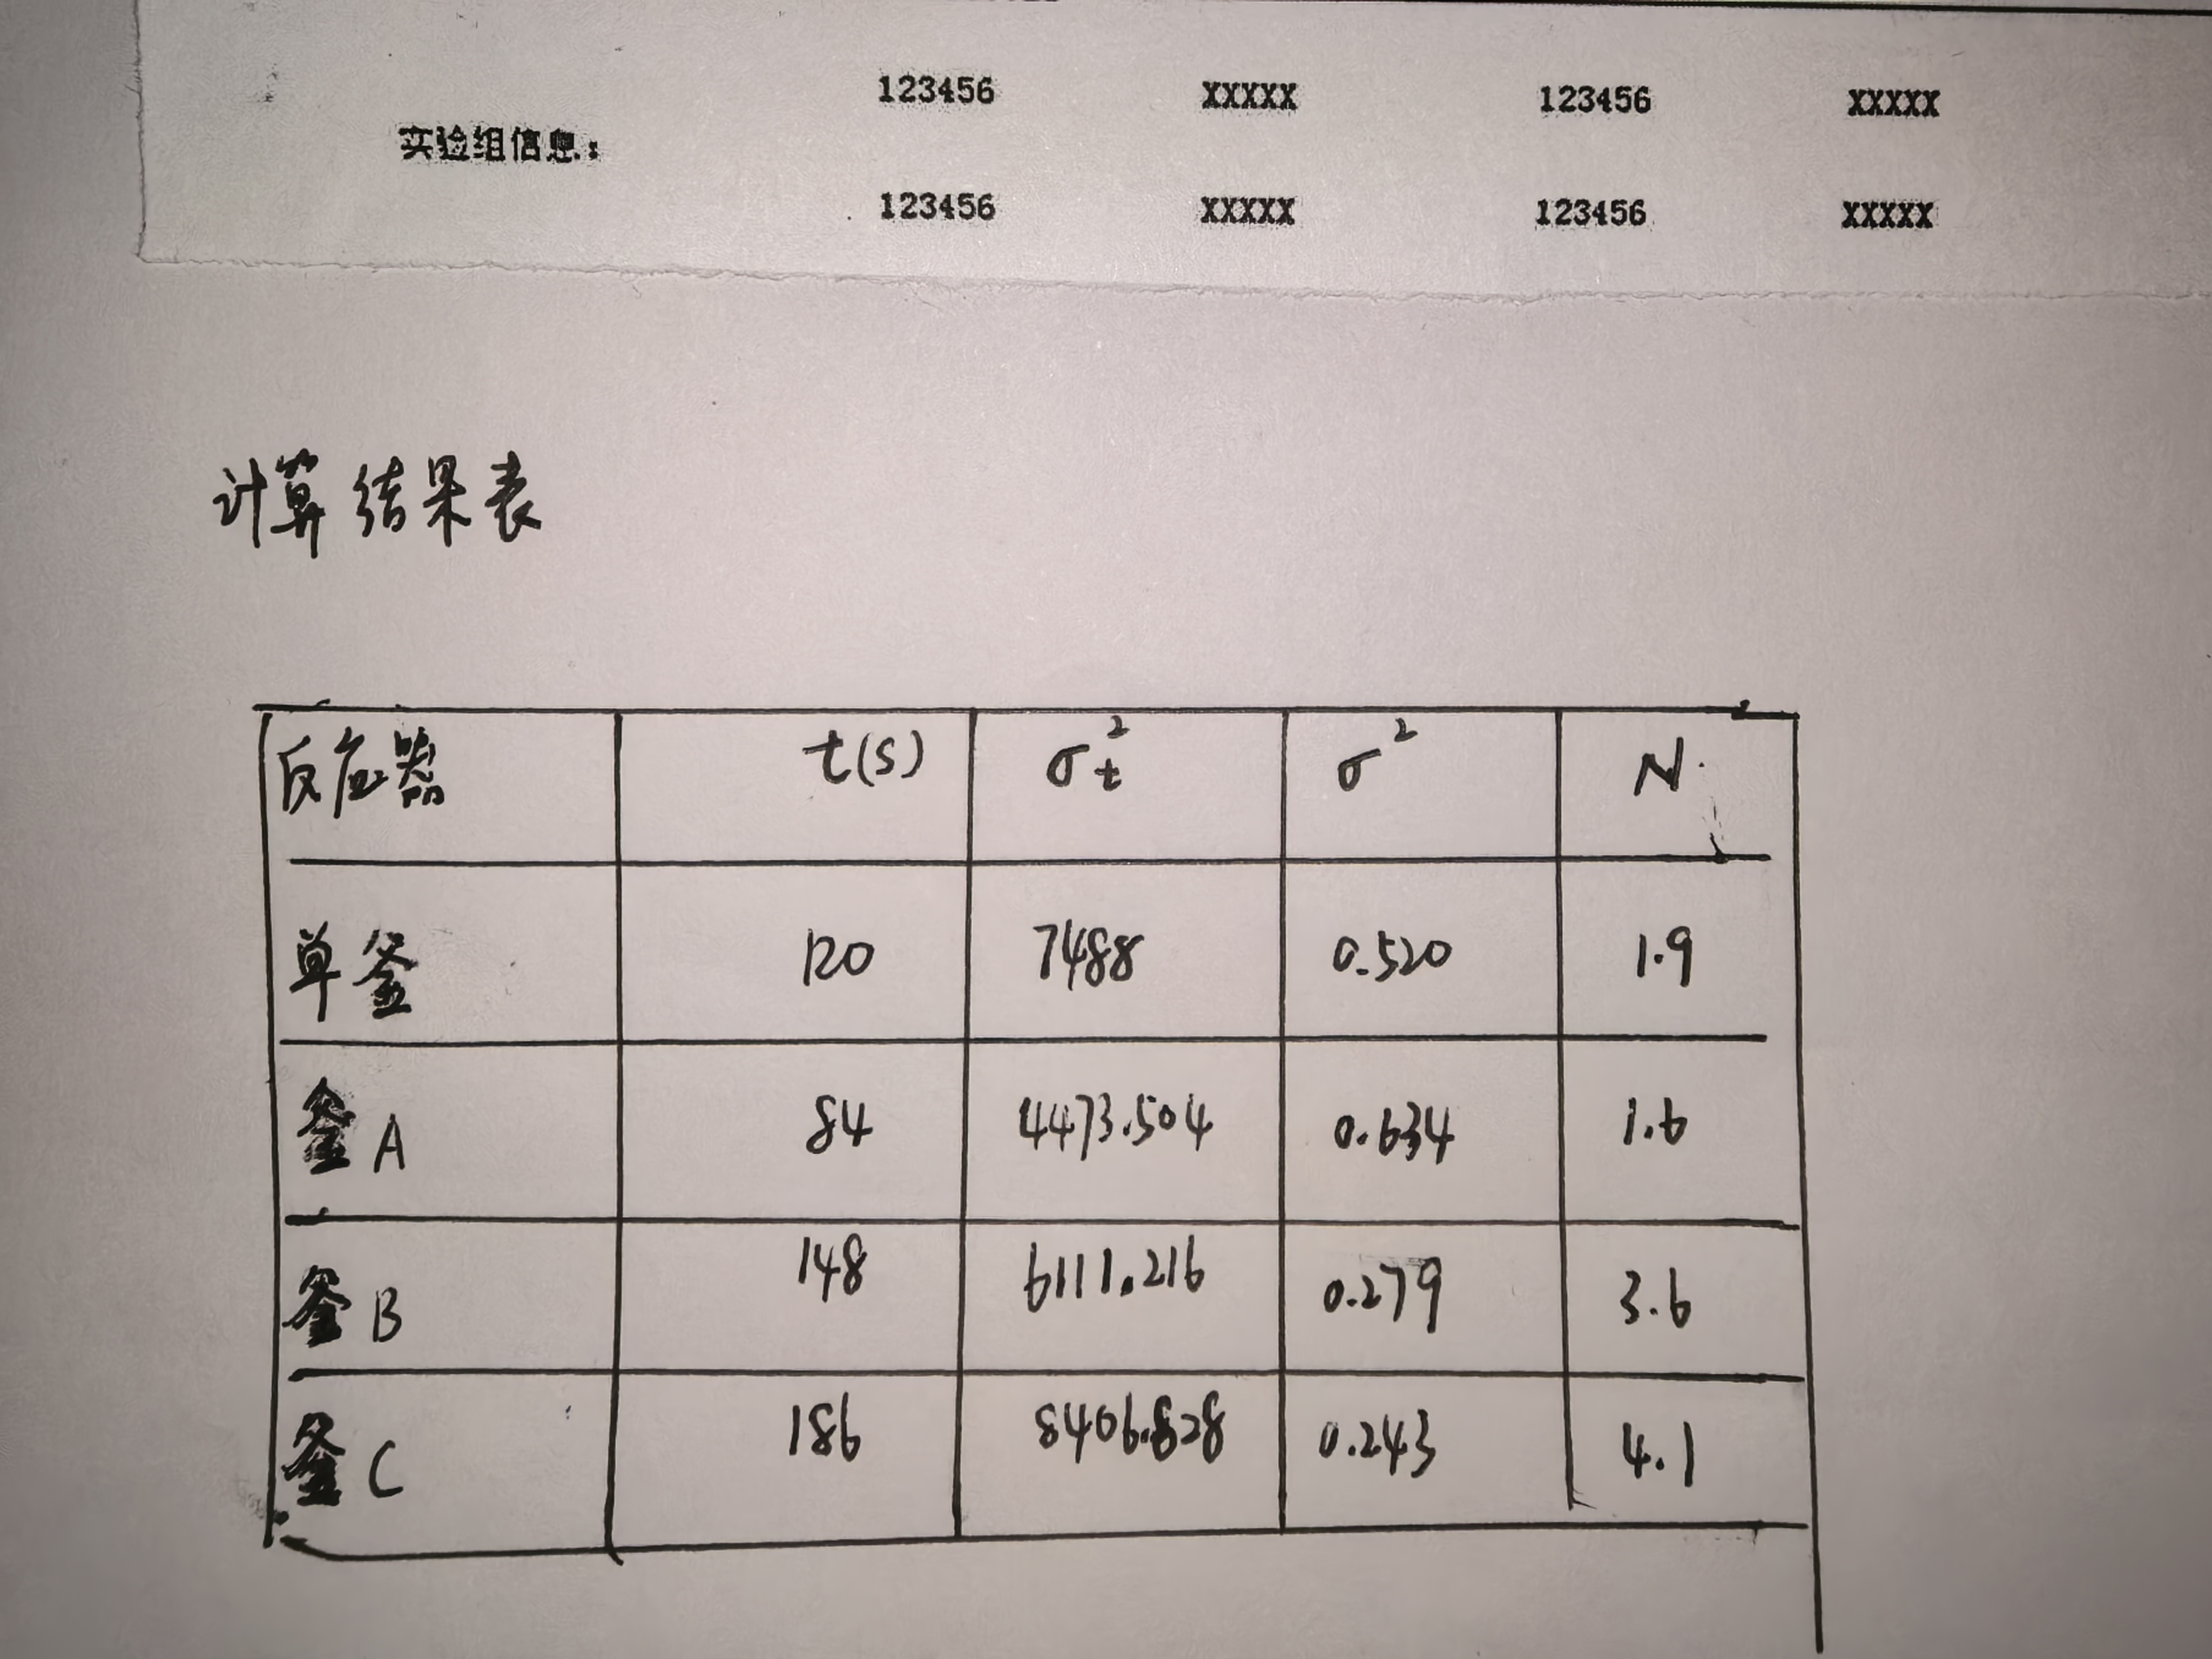 123456 XXXXX 123456 XXXXX
实验组信息：
123456 XXXXX 123456 XXXXX
计算结果表
反应器 t(s) σt² σ² N
单釜 120 7488 0.520 1.9
釜A 84 4473.504 0.634 1.6
釜B 148 6111.216 0.279 3.6
釜C 186 8406.828 0.243 4.1